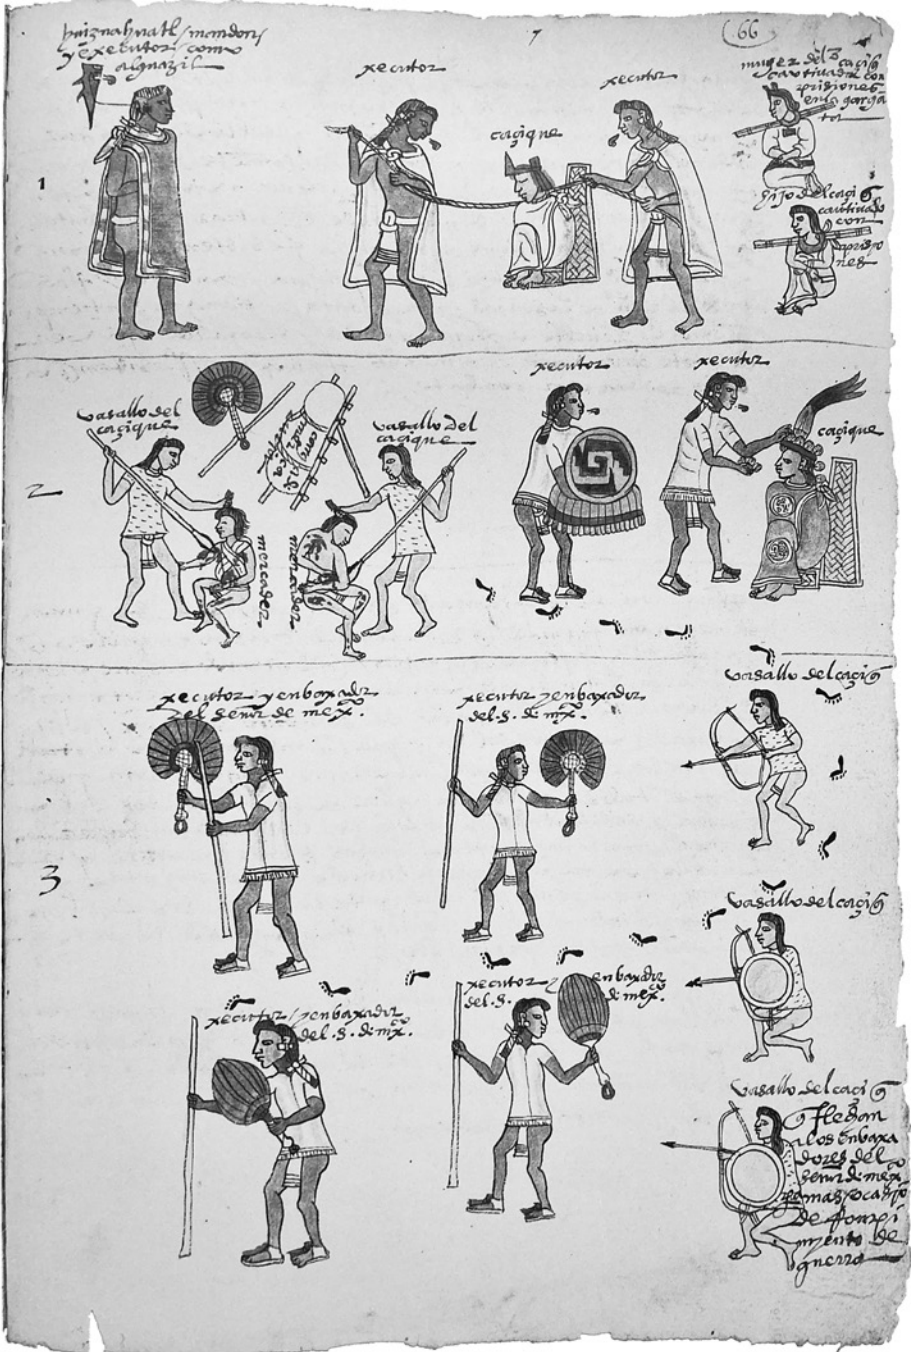 huiznahuatl / mandon /
y executor como
alguazil
7
66
xecutor
xecutor
caçique
muger del caçiq
cautivada con
prisiones
en la garga
ta
hijo del caçiq
cautivado
con
prisio
nes
1
vasallo del
caçique
vasallo del
caçique
mercader
mercader
xecutor
xecutor
caçique
2
vasallo del caçiq
xecutor y enbaxador
del señor de mexco.
xecutor y enbaxador
del. s. de mxco.
3
vasallo del caçiq
xecutor / y enbaxador
del. s. de mxco.
xecutor / y enbaxador
del. s. de mexco.
vasallo del caçiq
q flechan
a los enbaxa
dores del
señor de mexco
de Rompi
myento de
guerra